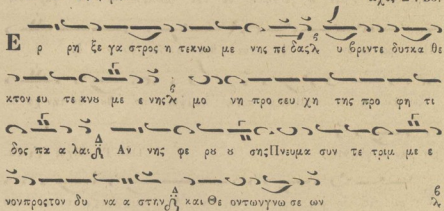 Ε ρ ρη ξε γα στρος η τεκνω με νης πε δας λ υ βριντε δυσκα θε
κτον ευ τε κνου με ε νης λ μο νη προ σευ χη της προ φη τι
δος πα α λαι Αν νης φε ρο υ σης Πνευμα συν τε τριμ με ε
νονπροςτον δυ να α στην και Θε οντωνγνω σε ων